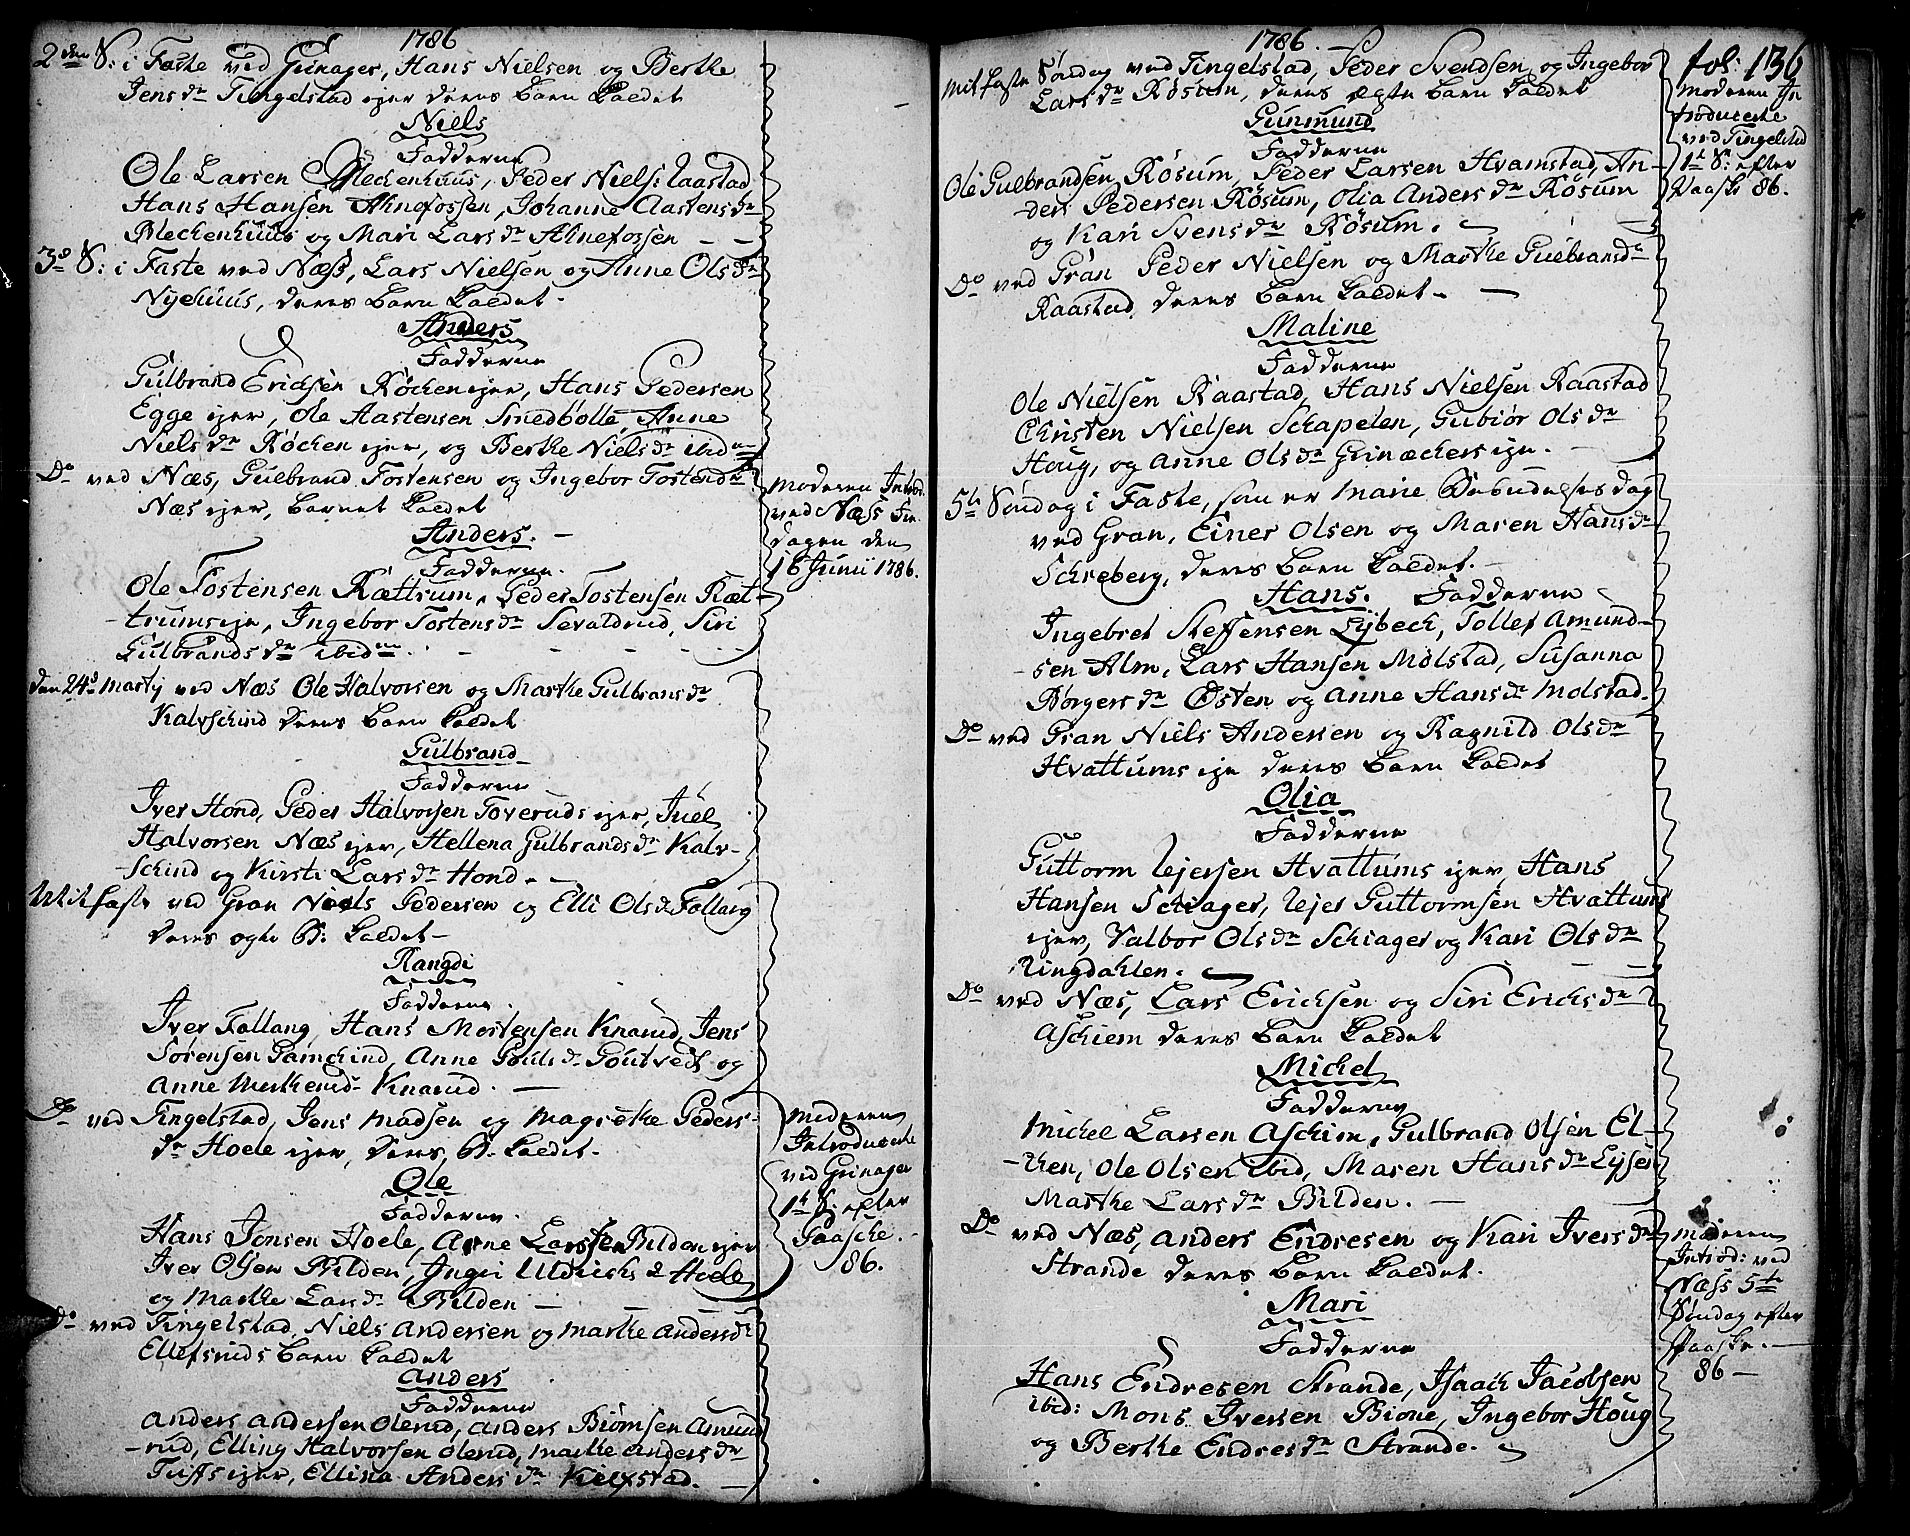 1786
2den S: i Faste ved Grinager, Hans Nielsen og Berthe
Jens dr Tingelstad ejer deres barn kaldet
Niels
Fadderne
Ole Larsen Bleckenhuus, Peder Niels: Raastad,
Hans Hansen Ahnefossen, Johanne Aastens dr
Bleckenhuus og Mari Lars dr Ahnefossen
3de S: i Faste ved Næss, Lars Nielsen og Anne Ols dr
Nyehuus, deres barn kaldet
Anders
Fadderne
Gulbrand Ericksen Røcken ejer, Hans Pedersen
Egge ejer, Ole Aastensen Smedbølle, Anne
Niels dr Røcken ejer, og Berthe Niels dr ibid
Do ved Næs, Gulbrand Tostensen og Ingebor Tosten dr
Næs ejer, barnet kaldet
Anders.
Fadderne.
Ole Tostensen Rættrum, Peder Tostensen Ræt-
-trumseje, Ingebor Tostens dr Sevaldrud, Siri
Gulbrands dr ibidm.
Moderen Introd.
ved Næss
dagen den
16 Junii 1786.
den 24d Martij ved Næs Ole Halvorsen og Marthe Gulbrans dr
Kalvschind deres barn kaldet
Gulbrand
Fadderne
Iver Hond, Peder Halvorsen Toverudsejer, Juel
Halvorsen Næs ejer, Hellena Gulbrands dr Kalv-
-schind og Kirsti Lars dr Hond.
Mitfaste ved Gran Niels Pedersen og Elli Ols dr Follang
deres ægte B: kaldet
Rangdi
Fadderne.
Iver Follang, Hans Mortensen Knarud, Jens
Sørensen Gamchind, Anne Pouls dr og
Anne Knarud.
Do ved Tingelstad, Jens Madsen og Magrethe Peders-
dr Hoele ejer, deres B. kaldet.
Ole
Fadderne.
Hans Jensen Hoele, Arne Larssen Bilden ejer
Iver Olsen Bilden, Inger Uldrichs d Hoele
og Marthe Lars dr Bilden
Moderen
Introducerte
ved Grinager
1te S: efter
Paasche.
86.
Do ved Tingelstad, Niels Andersen og Marthe Anders dr
Ellefsruds barn kaldet
Anders
Fadderne
Anders Andersen Olerud, Anders Biørnsen Amund
-rud, Elling Halvorsen Olerud, Marthe Anders dr
Tuffs ejer, Ellina Anders dr Kiexstad.
1786.
fol: 136
Mitfaste Søndag ved Tingelstad, Peder Svendsen og Ingebor
Lars dr Røsum, deres ægte barn kaldet
Gunmund
Fadderne
Ole Gulbrandsen Røsum, Peder Larsen Hvamstad, An-
-ders Pedersen Røsum, Olia Anders dr Røsum
og Kari Svens dr Røsum.
Moderen In
troducerte
ved Tingelstad
1te S: efter
Paaske 86.
Do ved Gran Peder Nielsen og Marthe Gulbrans dr
Raastad, deres barn kaldet
Maline
Fadderne
Ole Nielsen Raastad, Hans Nielsen Raastad
Christen Nielsen Schapelen, Gubiør Ols dr
Houg, og Anne Ols dr Grinæckers eje.
5te Søndag i Faste, som er Mariæ Bebudelses dag
ved Gran, Einer Olsen og Maren Hans dr
Schreberg, deres barn kaldet.
Hans. Fadderne
Ingebret Steffensen Lybeck, Tollef Amund-
-sen Alm, Lars Hansen Molstad, Susanna
Børgers dr Østen og Anne Hans dr Molstad.
Do ved Gran Niels Andersen og Ragnild Ols dr
Hvattums eje deres barn kaldet
Olia
Fadderne
Guttorm Ejersen Hvattums ejer, Hans
Hansen Schiager, Ejer Guttormsen Hvattums
ejer, Valbor Ols dr Schiager og Kari Ols dr
Ringdahlen.
Do ved Næs, Lars Ericksen og Siri Erichs dr
Aschiem deres barn kaldet
Michel
Fadderne
Michel Larsen Aschim, Gulbrand Olsen El-
-ken, Ole Olsen ibid, Maren Hans dr Lysen
Marthe Lars dr Bilden.
Do ved Næs, Anders Endresen og Kari Ivers dr
Strande deres barn kaldet.
Mari
Fadderne
Hans Endresen Strande, Isaach Jacobsen
ibid: Mons Iversen Bione, Ingebor Houg
og Berthe Endres dr Strande.
Moderen
Introd: ved
Næss 5te
Søndag efter
Paaske.
86